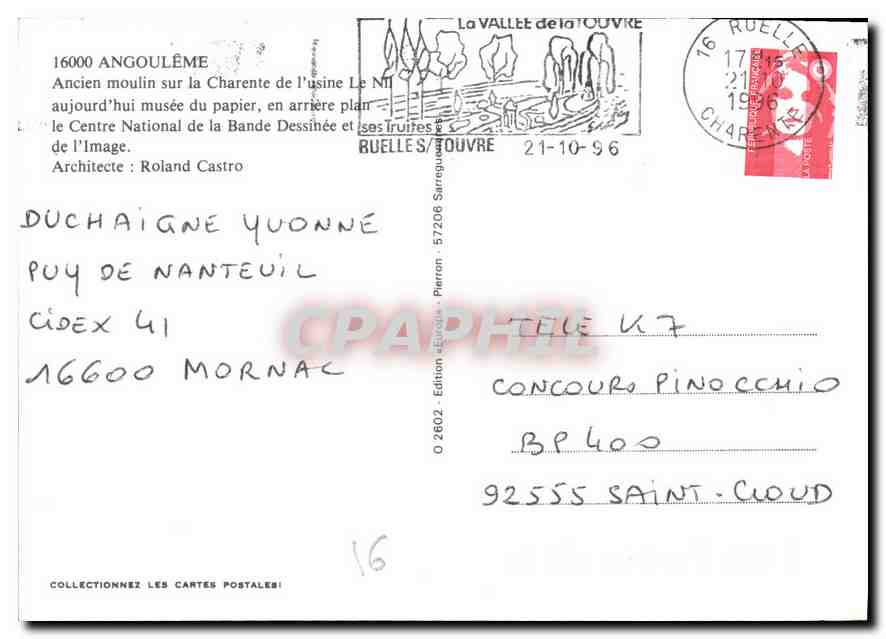 16000 ANGOULÊME
Ancien moulin sur la Charente de l'usine Le Nil
aujourd'hui musée du papier, en arrière plan
le Centre National de la Bande Dessinée et
de l'Image.
Architecte : Roland Castro
La VALLÉE de la TOUVRE
ses Truites
RUELLE S/TOUVRE 21-10-96
16 RUELLE
17
21
1996
CHARENTE
RÉPUBLIQUE FRANÇAISE
LA POSTE
DUCHAIGNE YVONNE
PUY DE NANTEUIL
CIDEX 41
16600 MORNAC
O 2602 - Edition «Europ» - Pierron - 57206 Sarreguemines
CPAPHIL
TELE K7
CONCOURS PINOCCHIO
BP 400
92555 SAINT-CLOUD
16
COLLECTIONNEZ LES CARTES POSTALES!